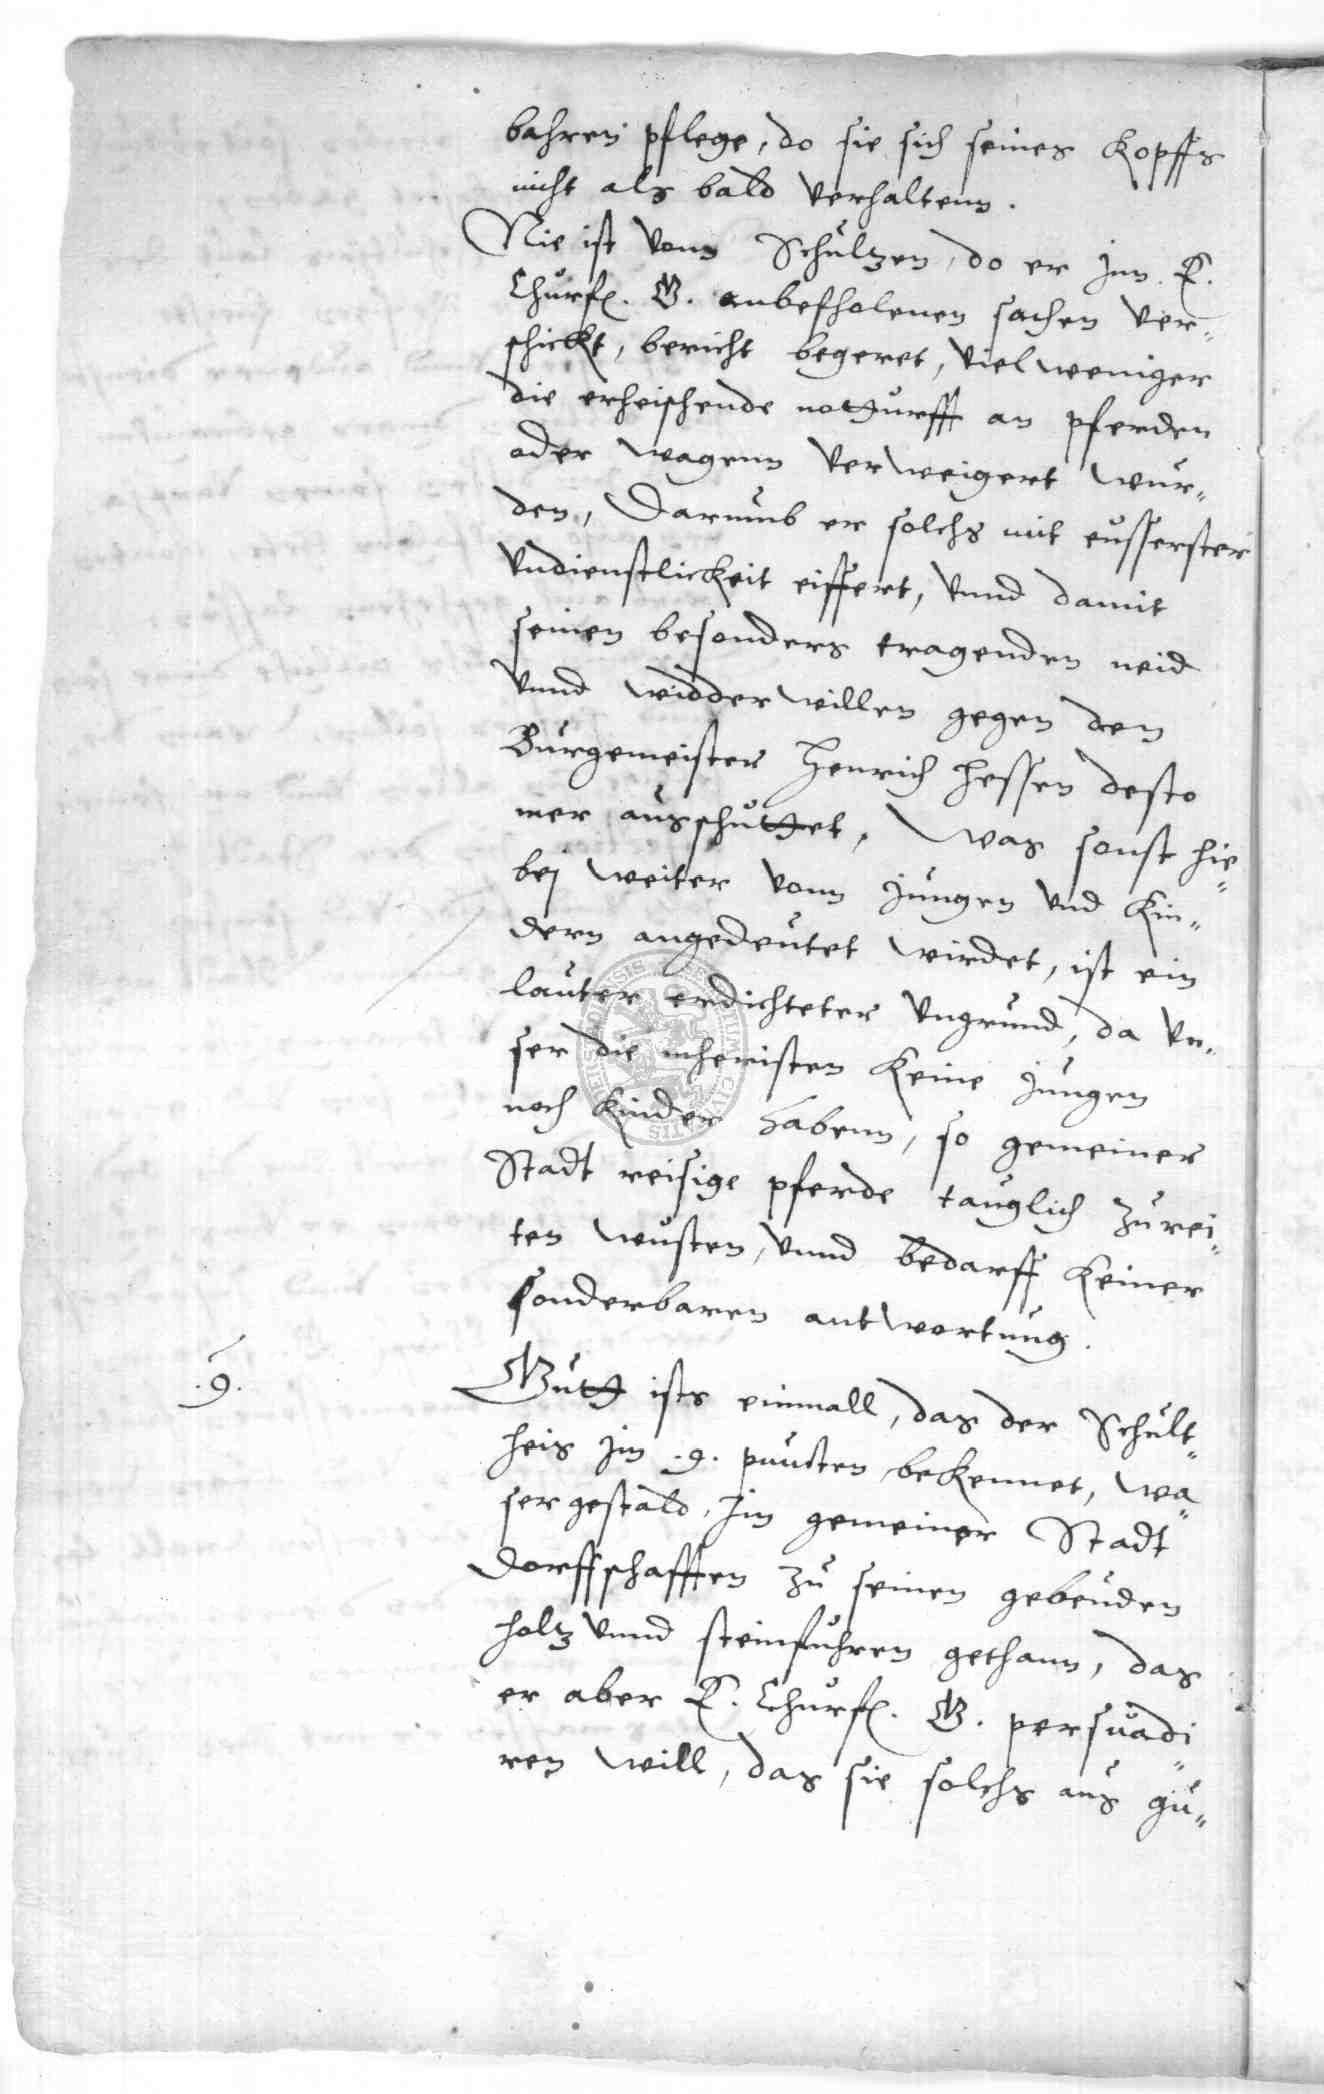 bahren pflege, do sie sich seines Kopffs
nicht als bald verhaltenn.
Nie ist vonn Schultzen, do er jnn E.
Churf. G. anbefholenen sachen ver„
schickt, bericht begeret, viel weniger
die erheischende notturfft an pferden
oder wagenn verweigert wur„
den, Darumb er solchs mit eusserster
vndienstlickeit eiffert, vnnd damit
seinen besonders tragenden neid
vnnd widderwillen gegen den
Burgemeister Henrich Hessen desto
mer ausschuttet, Was sonst hie„
bej weiter vonn jungen vnd Kin„
dern angedeutet wirdet, ist ein
lauter erdichteter vngrund, da vn„
ser die mheristen Keine jungen
noch Kinder habenn, so gemeiner
Stadt reisige pferde tauglich zu rei„
ten wusten, vnnd bedarff Keiner
sonderbaren antwortung.
.9.
Gutt ists einmall, das der Schult„
heis jm .9. puncten bekennet, wa„
ser gestald, jm gemeiner Stadt
dorffschafften zu seinen gebeuden
holtz vnnd steinfuhren gethann, das
er aber E. Churf. G. persuadi„
ren will, das sie solchs aus gu„